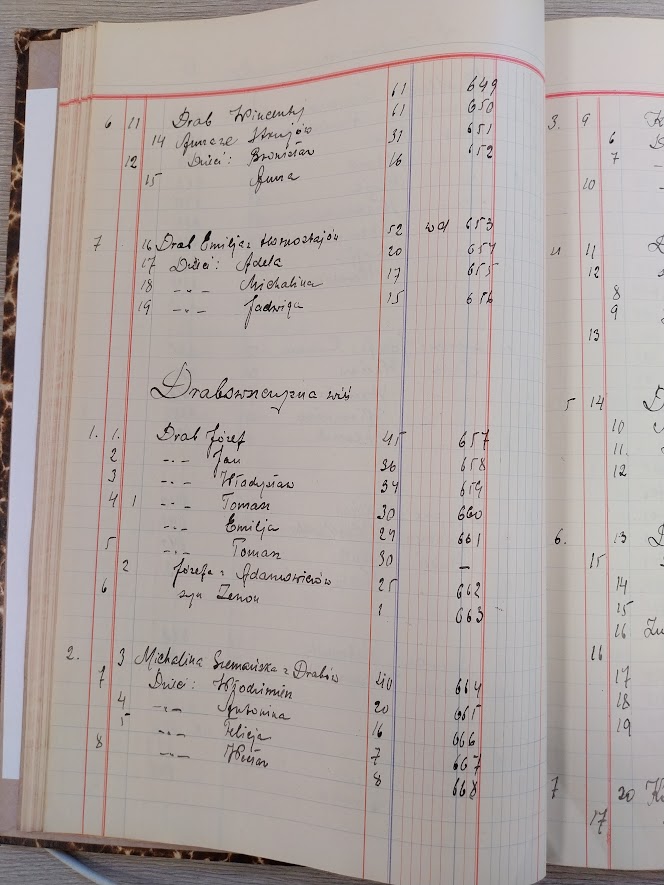 6 11 Drab Wincenty 61 649
14 Anna ze Strujów 61 650
12 Dzieci: Bronisław 31 651
15 Anna 16 652
7 16 Drab Emilja z 52 wd 653
17 Dzieci: Adela 20 654
18 -„- Michalina 17 655
19 -„- Jadwiga 15 656
wieś
1. 1. Drab Józef 45 657
2 -„- Jan 36 658
3 -„- Władysław 34 659
4 1 -„- Tomasz 30 660
-„- Emilja 29 661
5 -„- Tomasz 30 —
2 Józefa z Adamowiczów 25 662
6 syn Zenon 1 663
2. 3 Michalina Siemańska z Drabów 40 664
7 Dzieci: Włodzimierz 20 665
4 -„- Antonina 16 666
5 -„- Felicja 7 667
8 -„- Wiesław 8 668
3. 9
6
7
10
4 11
12
8
9
13
5 14
10
11.
12
6. 13
15
14
15
16
16
17
18
19
7 20
17